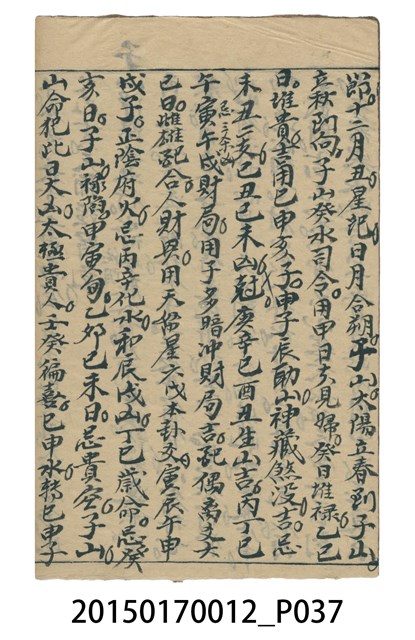 節十二月丑星記日月合朔子山太陽立春到子山
立秋到向子山癸水司令用甲日為見婦癸日堆祿乙巳
日堆貴吉用巳申亥子甲子辰助山神藏煞没吉忌
未丑二亥己丑己未凶冠庚辛巳酉丑生山吉丙丁巳
午寅午戌財局用子多暗冲財局吉配偶爻大
忌三傘山
巳日雌雄配合人財異用天帑星六戊本卦爻寅辰午申
戌子正陰府火忌丙辛化水和辰戌山丁巳歲命忌癸
亥日子山祿陷甲寅旬乙卯巳未日忌貴空子山
山命犯此日大凶太極貴人壬癸偏喜巳申水轉巳申子
20150170012_P037